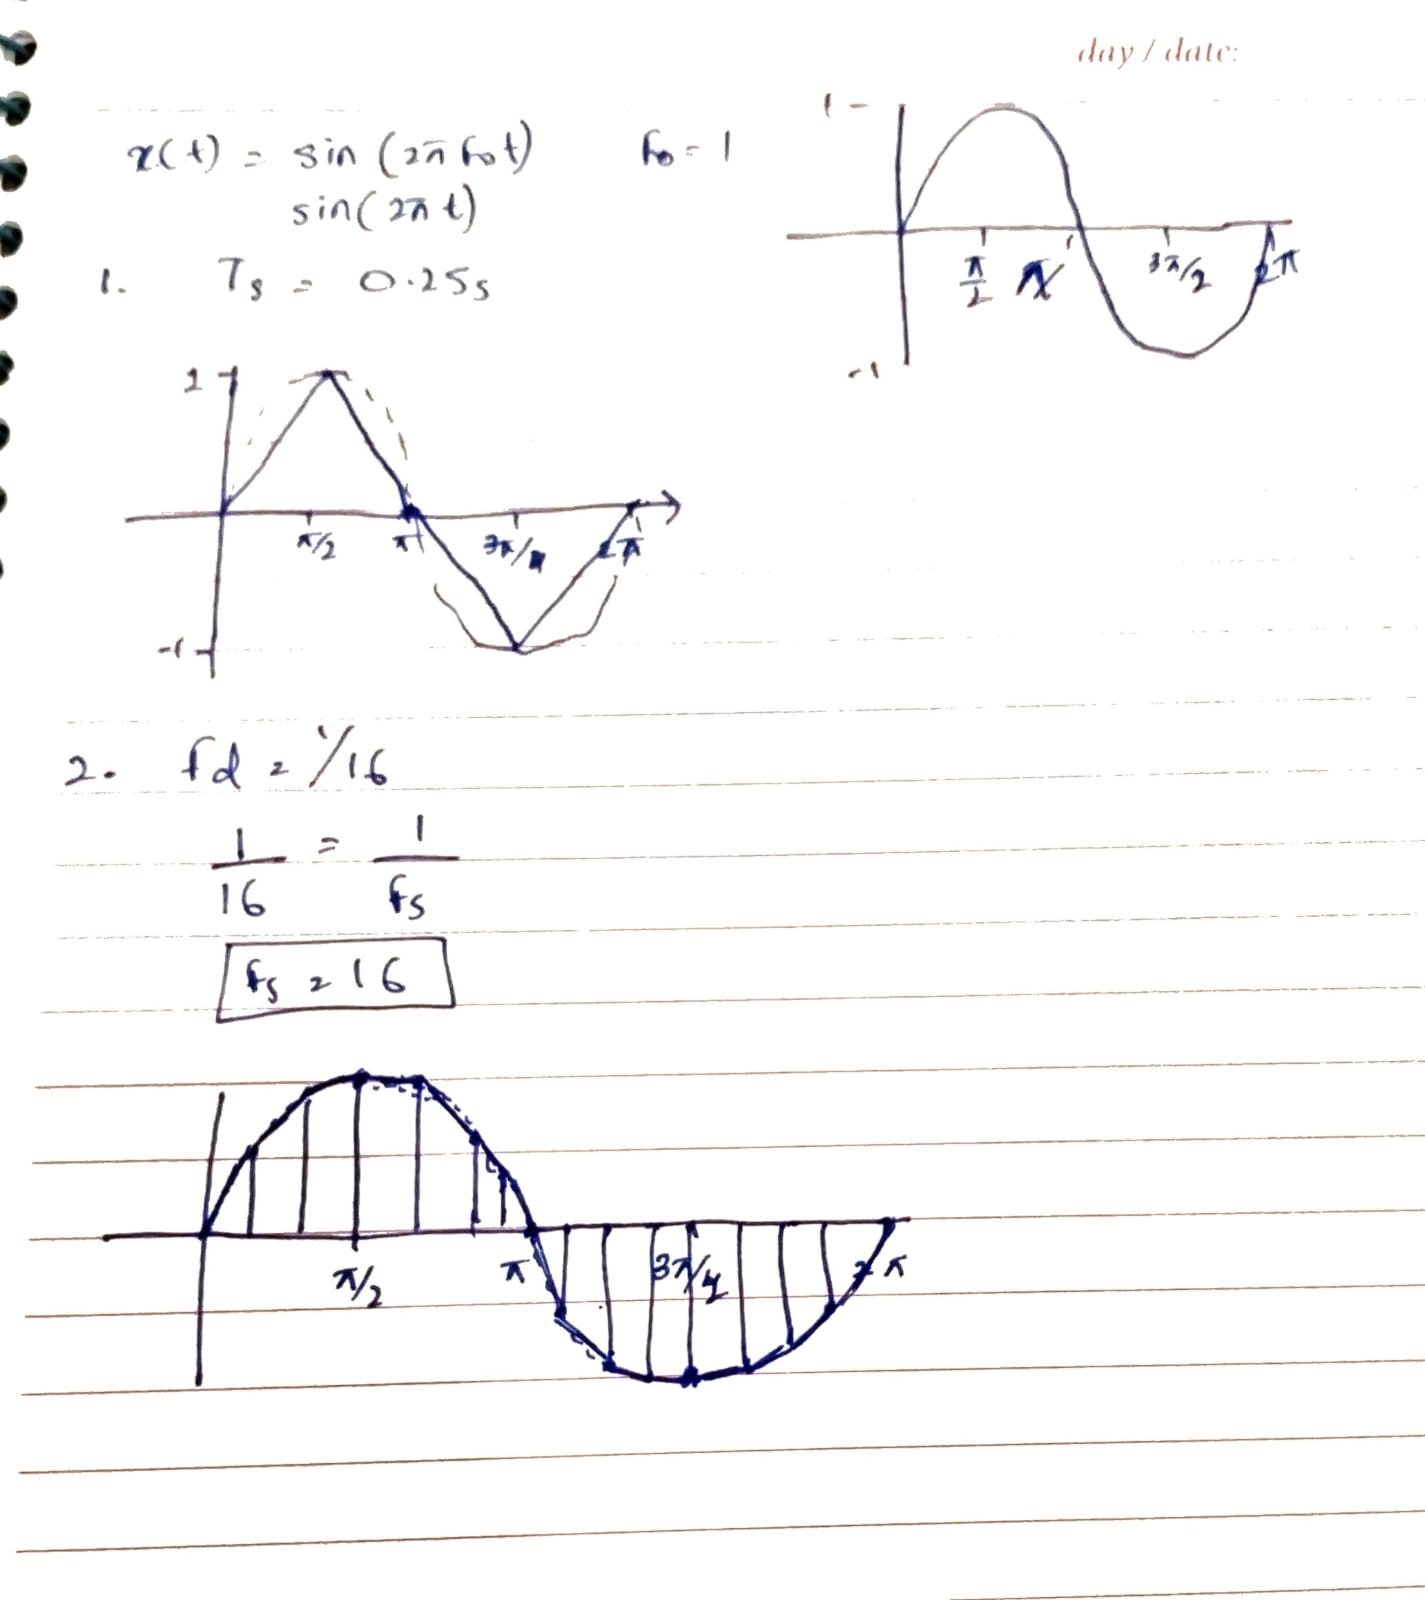 day / date:
x(t) = sin (2π fot) fo = 1
sin(2π t)
1. Ts = 0.25s
1
π/2 π 3π/2 2π
-1
1
π/2 π 3π/ 2π
-1
2. fd = 1/16
1/16 = 1/fs
fs = 16
π/2 π 3π/4 2π